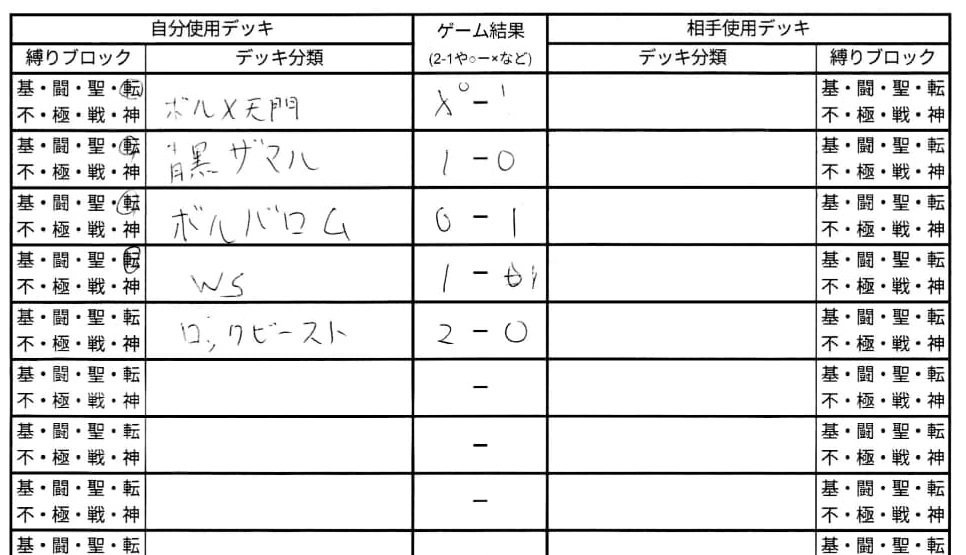 自分使用デッキ ゲーム結果 (2-1や○ー×など) 相手使用デッキ
縛りブロック デッキ分類 デッキ分類 縛りブロック
基・闘・聖・転 基・闘・聖・転
不・極・戦・神 ボルメ天門 0 - 1 不・極・戦・神
基・闘・聖・転 基・闘・聖・転
不・極・戦・神 青黒ザマル 1 - 0 不・極・戦・神
基・闘・聖・転 基・闘・聖・転
不・極・戦・神 ボルバロム 0 - 1 不・極・戦・神
基・闘・聖・転 基・闘・聖・転
不・極・戦・神 WS 1 - 不・極・戦・神
基・闘・聖・転 基・闘・聖・転
不・極・戦・神 ロックビースト 2 - 0 不・極・戦・神
基・闘・聖・転 基・闘・聖・転
不・極・戦・神 - 不・極・戦・神
基・闘・聖・転 基・闘・聖・転
不・極・戦・神 - 不・極・戦・神
基・闘・聖・転 基・闘・聖・転
不・極・戦・神 - 不・極・戦・神
基・闘・聖・転 基・闘・聖・転